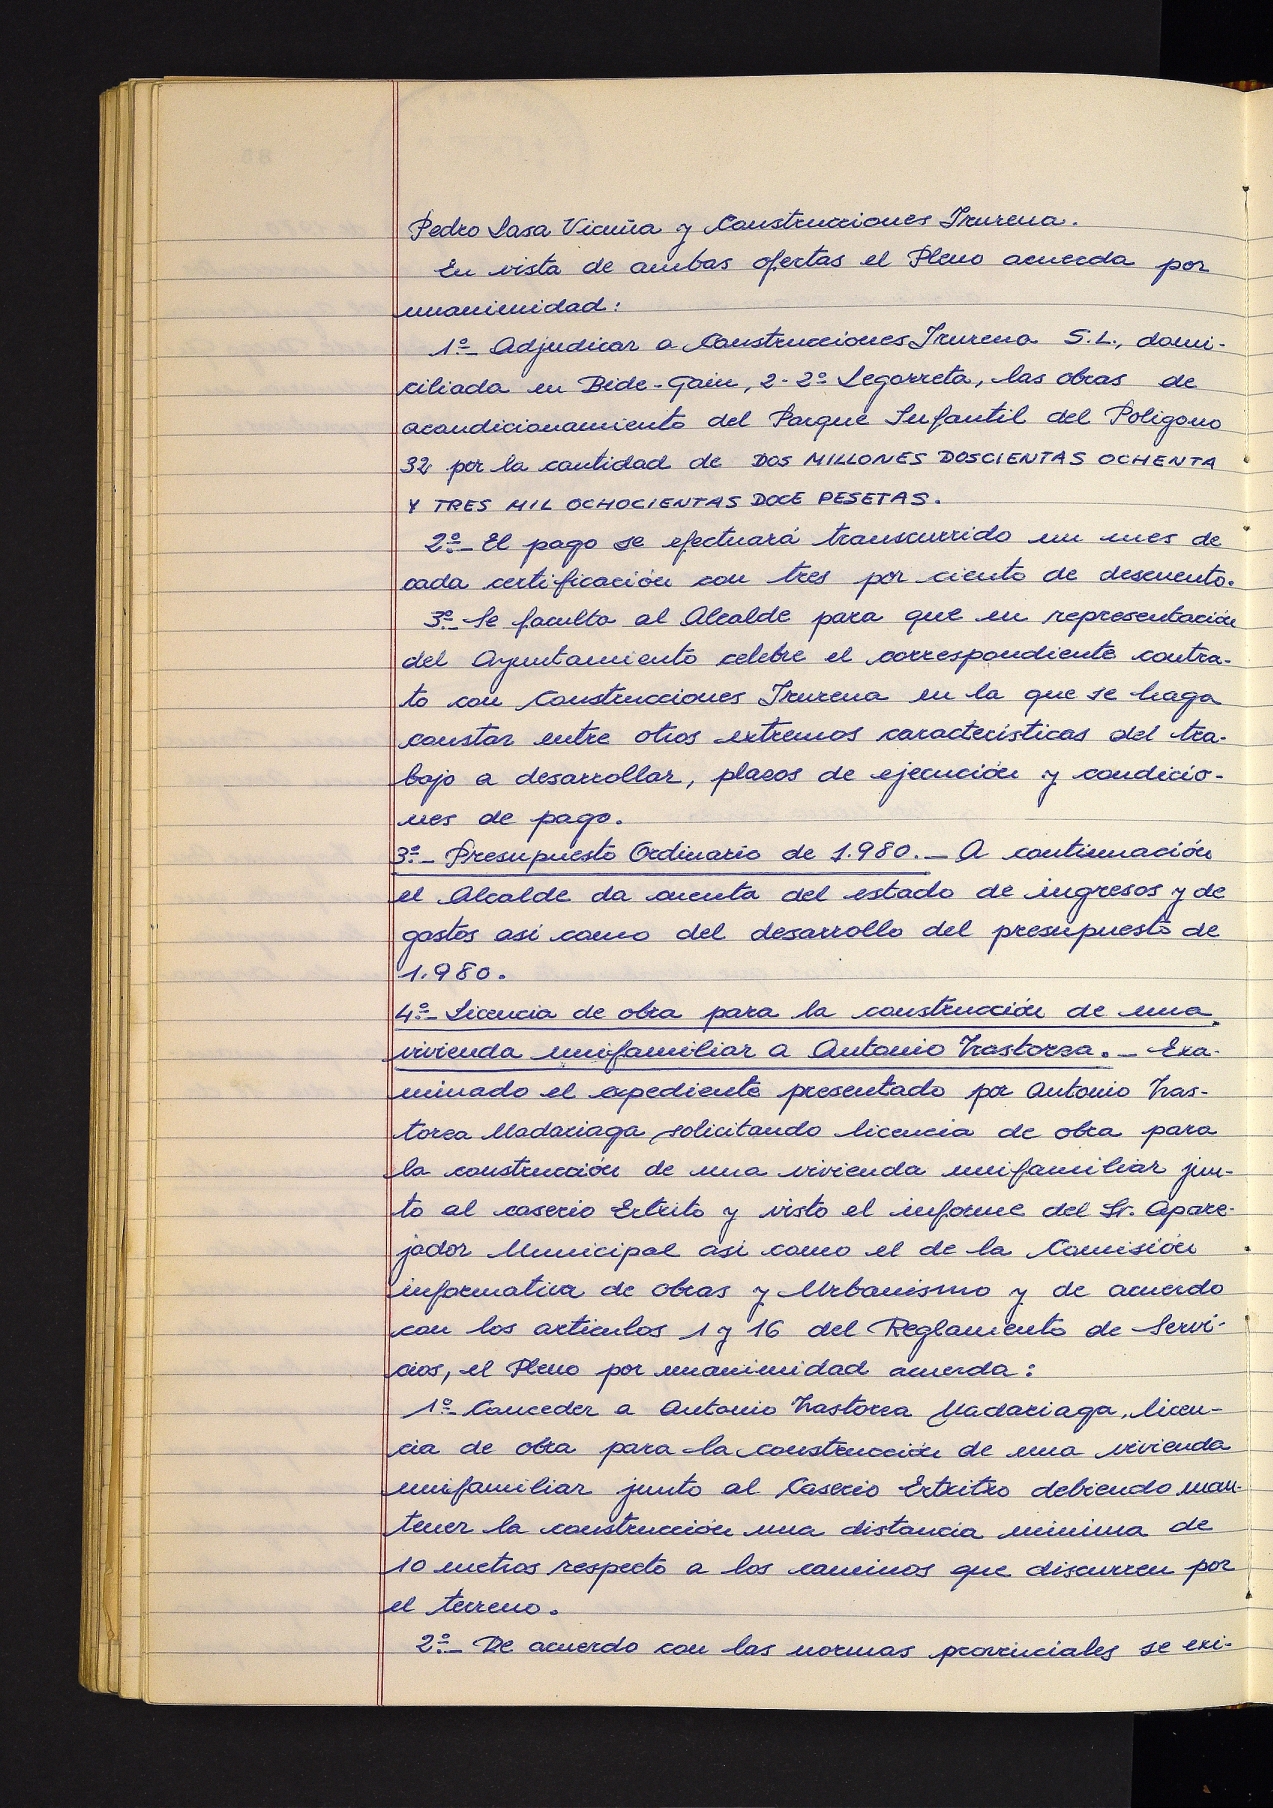 Pedro Lasa Vicuña y Construcciones Irurena.
En vista de ambas ofertas el Pleno acuerda por
unanimidad:
1º- Adjudicar a Construcciones Irurena S.L., domi-
ciliada en Bide-Gain, 2-2º Legorreta, las obras de
acondicionamiento del Parque Infantil del Poligono
32 por la cantidad de DOS MILLONES DOSCIENTAS OCHENTA
Y TRES MIL OCHOCIENTAS DOCE PESETAS.
2º- El pago se efectuará transcurrido un mes de
cada certificación con tres por ciento de descuento.
3º- Se faculta al Alcalde para que en representación
del Ayuntamiento celebre el correspondiente contra-
to con Construcciones Irurena en la que se haga
constar entre otros extremos características del tra-
bajo a desarrollar, plazos de ejecución y condicio-
nes de pago.
3º- Presupuesto Ordinario de 1.980.- A continuación
el Alcalde da cuenta del estado de ingresos y de
gastos asi como del desarrollo del presupuesto de
1.980.
4º- Licencia de obra para la construcción de una
vivienda unifamiliar a Antonio Trastorza.- Exa-
minado el expediente presentado por Antonio Tras-
torza Madariaga solicitando licencia de obra para
la construcción de una vivienda unifamiliar jun-
to al caserio Ertrito y visto el informe del Sr. Apare-
jador Municipal asi como el de la Comisión
informativa de obras y Urbanismo y de acuerdo
con los articulos 1 y 16 del Reglamento de Servi-
cios, el Pleno por unanimidad acuerda:
1º- Conceder a Antonio Trastorza Madariaga, licen-
cia de obra para la construcción de una vivienda
unifamiliar junto al Caserio Ertritro debiendo man-
tener la construcción una distancia minima de
10 metros respecto a los caminos que discurren por
el terreno.
2º- De acuerdo con las normas provinciales se exi-